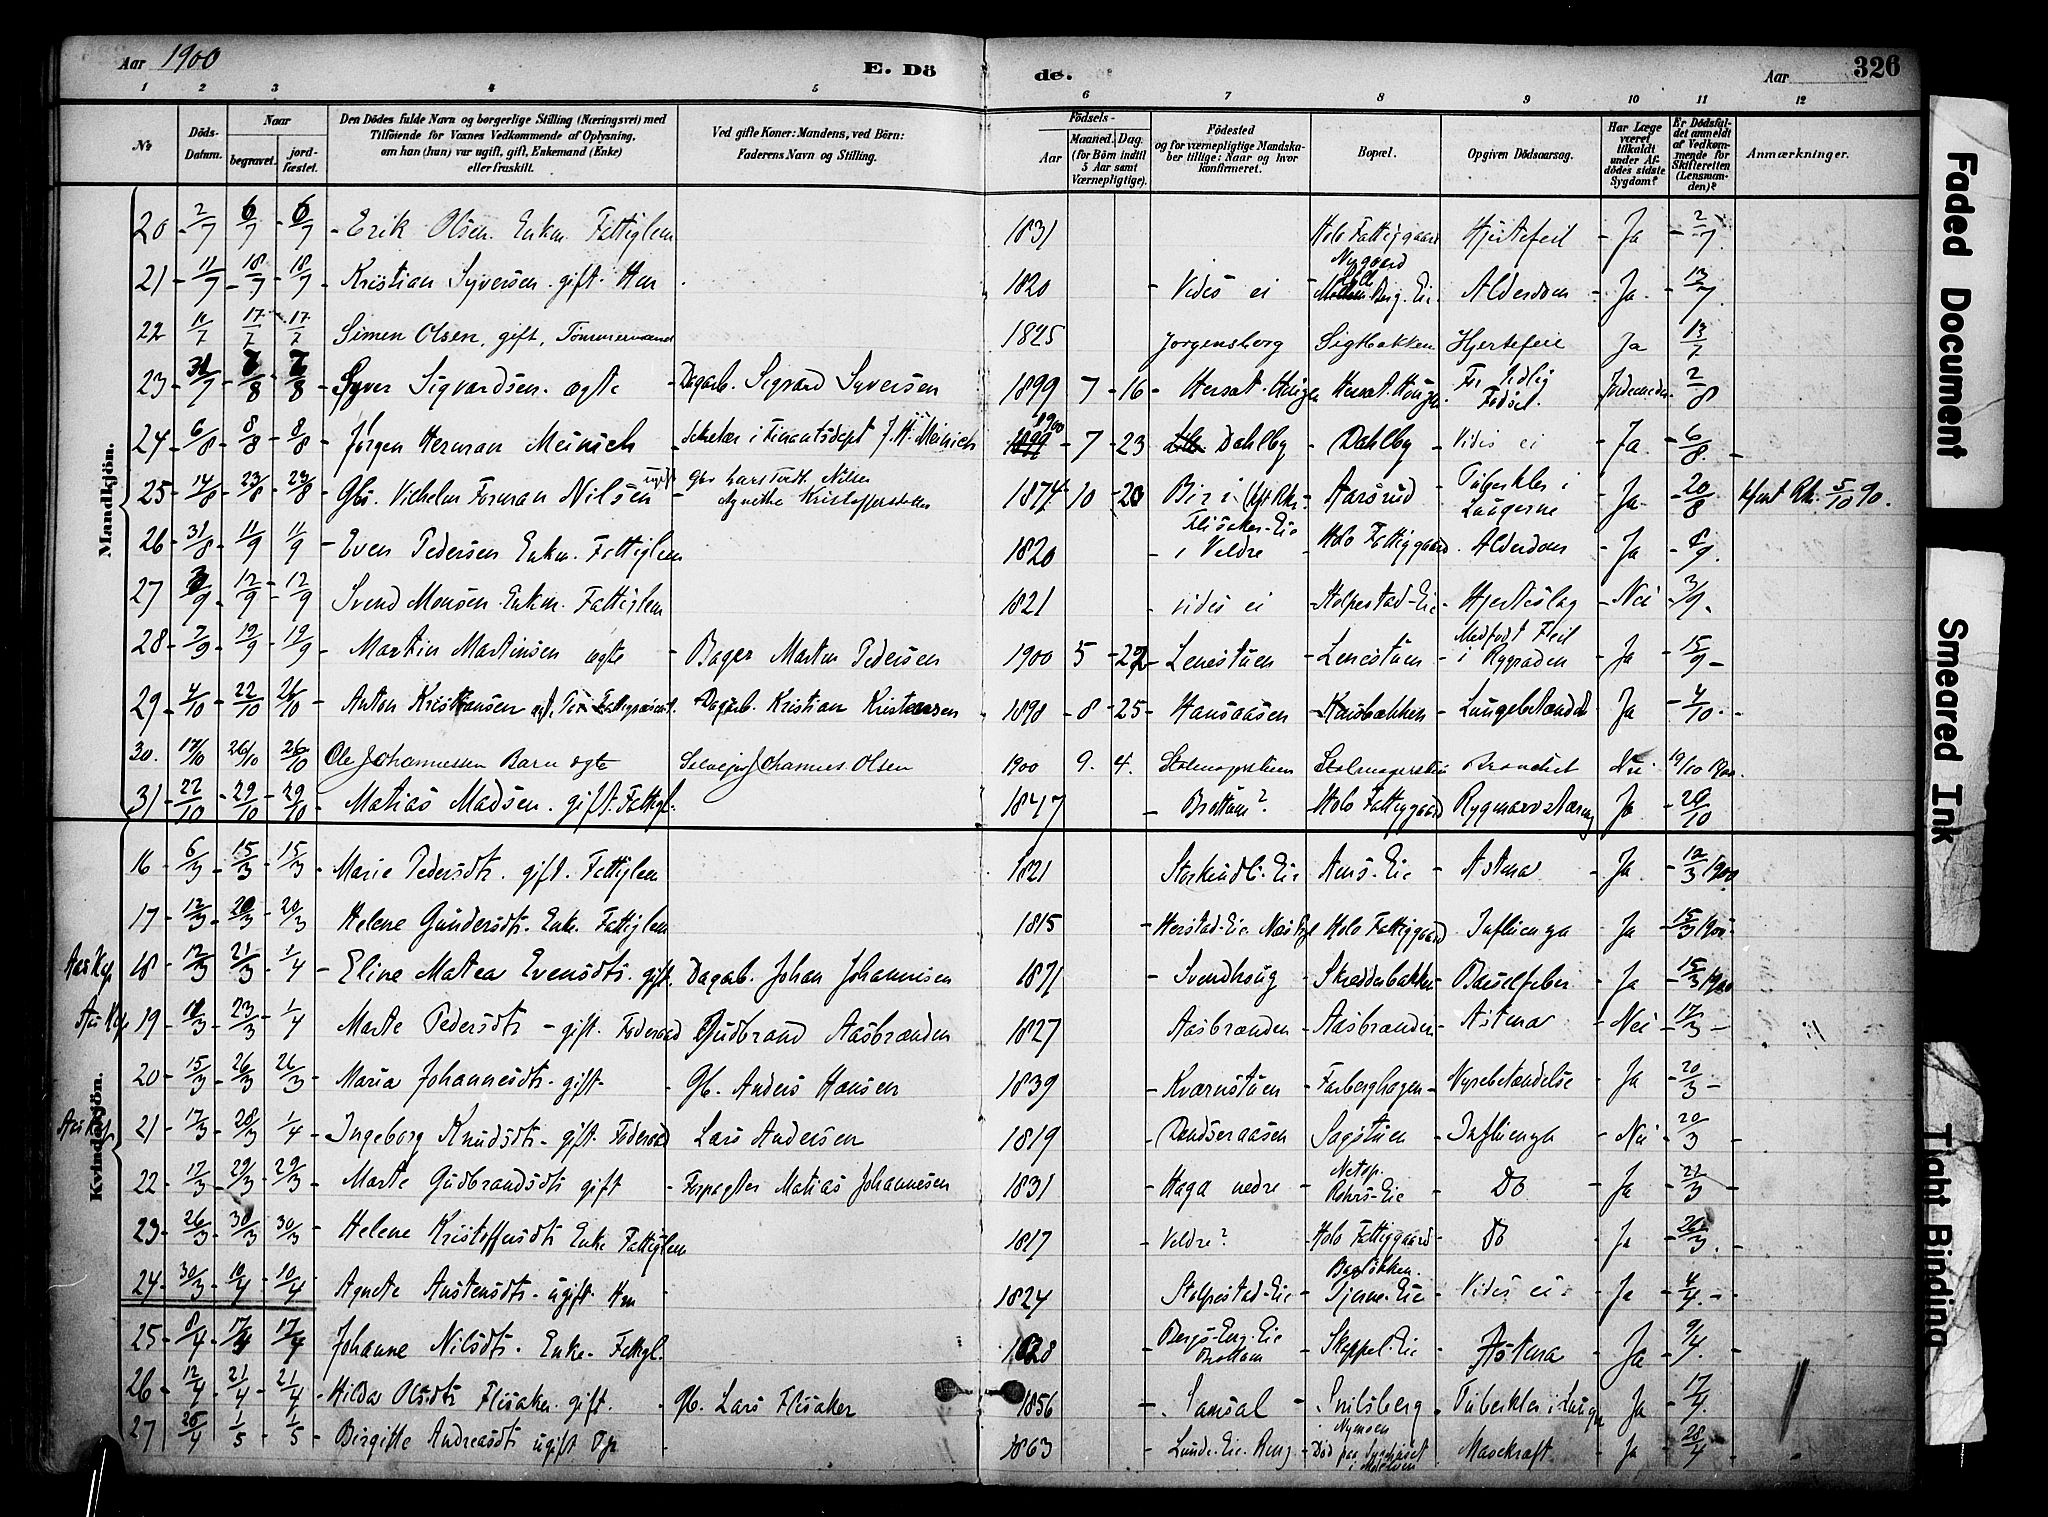 Aar 1900
E. Dö
de.
Aar
326
1 2 3 4 5 6 7 8 9 10 11 12
No
Döds-Datum.
Naar
begravet.
jord-fæstet.
Den Dödes fulde Navn og borgerlige Stilling (Næringsvei) med
Tilföiende for Vaxnes Vedkommende af Oplysning,
om han (hun) var ugift, gift, Enkemand (Enke)
eller fraskilt.
Ved gifte Koner: Mandens, ved Börn:
Faderens Navn og Stilling.
Födsels-
Aar
Maaned. Dag.
(for Börn indtil
5 Aar samt
Værnepligtige).
Födested
og for værnepligtige Mandska-
ber tillige: Naar og hvor
konfirmeret.
Bopæl.
Opgiven Dödsaarsag.
Har Læge
været
tilkaldt
under Af-
dödes sidste
Sygdom?
Er Dödsfal-
det anmeldt
af Vedkom-
mende for
Skifteretten
(Lensman-
den)?
Anmærkninger.
Mandkjön.
20 2/7 6/7 6/7 Erik Olsen. Enkm. Fattiglem 1831 Holo Fattiggaard Hjertefeil Ja 2/7
21 11/7 18/7 18/7 Kristian Syversen. gift. Hm 1820 Vides ei Nygaard Berg. Eie Alderdom Ja 13/7
22 11/7 17/7 17/7 Simen Olsen, gift, Tømmermand 1825 Jorgensborg Sigstbakken Hjertefeil Ja 13/7
23 31/7 7/8 7/8 Syver Sigvardsen. ægte Dagarb. Sigvard Syversen 1899 7 16 For tidlig Födsel. Jordemoder 2/8
24 6/8 8/8 8/8 Jørgen Herman Meinich Sekretær i Finantsdept J. H. Meinich 1900 7 23 Dahlby Dahlby Vides ei Ja 6/8
25 14/8 23/8 23/8 Gbs. Vilhelm Forman Nilsen ugift 1874 10 20 Biri Aarsrud Tuberkler i Lungerne Ja 20/8 Konf. Rk. 5/10 90.
26 31/8 11/9 11/9 Even Pedersen Enkm. Fattiglem 1820 Flisaker-Eie i Veldre Holo Fattiggaard Alderdom Ja 8/9
27 3/9 12/9 12/9 Svend Monsen. Enkm. Fattiglem 1821 vides ei Stolpestad-Eie Hjerteslag Nei 3/9
28 7/9 19/9 19/9 Martin Martinsen ægte Bager Martin Pedersen 1900 5 22 Lenestuen Lenestuen Medfødt Feil i Rygraden Ja 15/9
29 4/10 22/10 26/10 Anton Kristiansen Dagarb. Kristian Kristensen 1898 8 25 Hansaasen Lungebetændelse Ja 4/10
30. 17/10 26/10 26/10 Ole Johannessen Barn ægte Selveier Johannes Olsen 1900 9. 4. Brandsut Nei 19/10 1900.
31 22/10 29/10 29/10 Matias Madsen. gift. Fattigl. 1847 Brøttum? Holo Fattiggaard Rygmarvstæring Ja 20/10
Kvindekjön.
16 6/3 15/3 15/3 Marie Pedersdt. gift. Fattiglem 1821 Aurs-Eie Astma Ja 12/3 1900
17 12/3 20/3 20/3 Helene Gundersdt. Enke. Fattiglem 1815 Herstad-Eie. Holo Fattiggaard Influenza Ja 15/3 1900
Aas Kap 18 12/3 21/3 1/4 Eline Matea Evensdt. gift. Dagarb. Johan Johannesen 1871 Svendhoug Skrædderbakken Barselfeber Ja 15/3 1900
Aas Kap 19 12/3 23/3 1/4 Marte Pedersdt. gift. Føderaad Gudbrand Aasbrænden 1827 Aasbrænden Aasbrænden Astma Nei 17/3
20 15/3 26/3 26/3 Maria Johannesdt. gift Gb. Anders Hansen 1839 Kværnstuen Farberghagen Nyrebetændelse Ja 20/3
Aas Kap 21 17/3 28/3 1/4 Ingeborg Knudsdt. gift. Føderaad Lars Andersen 1819 Sagstuen Influenza Nei 20/3
22 17/3 29/3 29/3 Marte Gudbrandsdt. gift Forpagter Matias Johannesen 1831 Haga nedre Rohrs-Eie Do Ja 22/3
23 26/3 30/3 30/3 Helene Kristoffersdt. Enke Fattiglem 1817 Veldre? Holo Fattiggaard Do Ja 26/3
24 30/3 10/4 10/4 Agnete Austensdt. ugift Hm 1824 Stolpestad-Eie Tjerne-Eie Vides ei Ja 4/4
25 8/4 17/4 17/4 Johanne Nilsdt. Enke. Fattigl. 1828 Bergs-Eng. Eie Brøttum Skappel-Eie Astma Ja 9/4
26 12/4 21/4 21/4 Hilda Olsdt. Flisaker. gift. Gb. Lars Flisaker 1856 Samsal Snilsberg Tuberkler i Lunger Ja 17/4
27 25/4 1/5 1/5 Birgitte Andreasdt. ugift Tje 1863 Lunde-Eie. Ring. Død paa Sygehuset Mavekræft Ja 28/4
Faded Document
Smeared Ink
Tight Binding